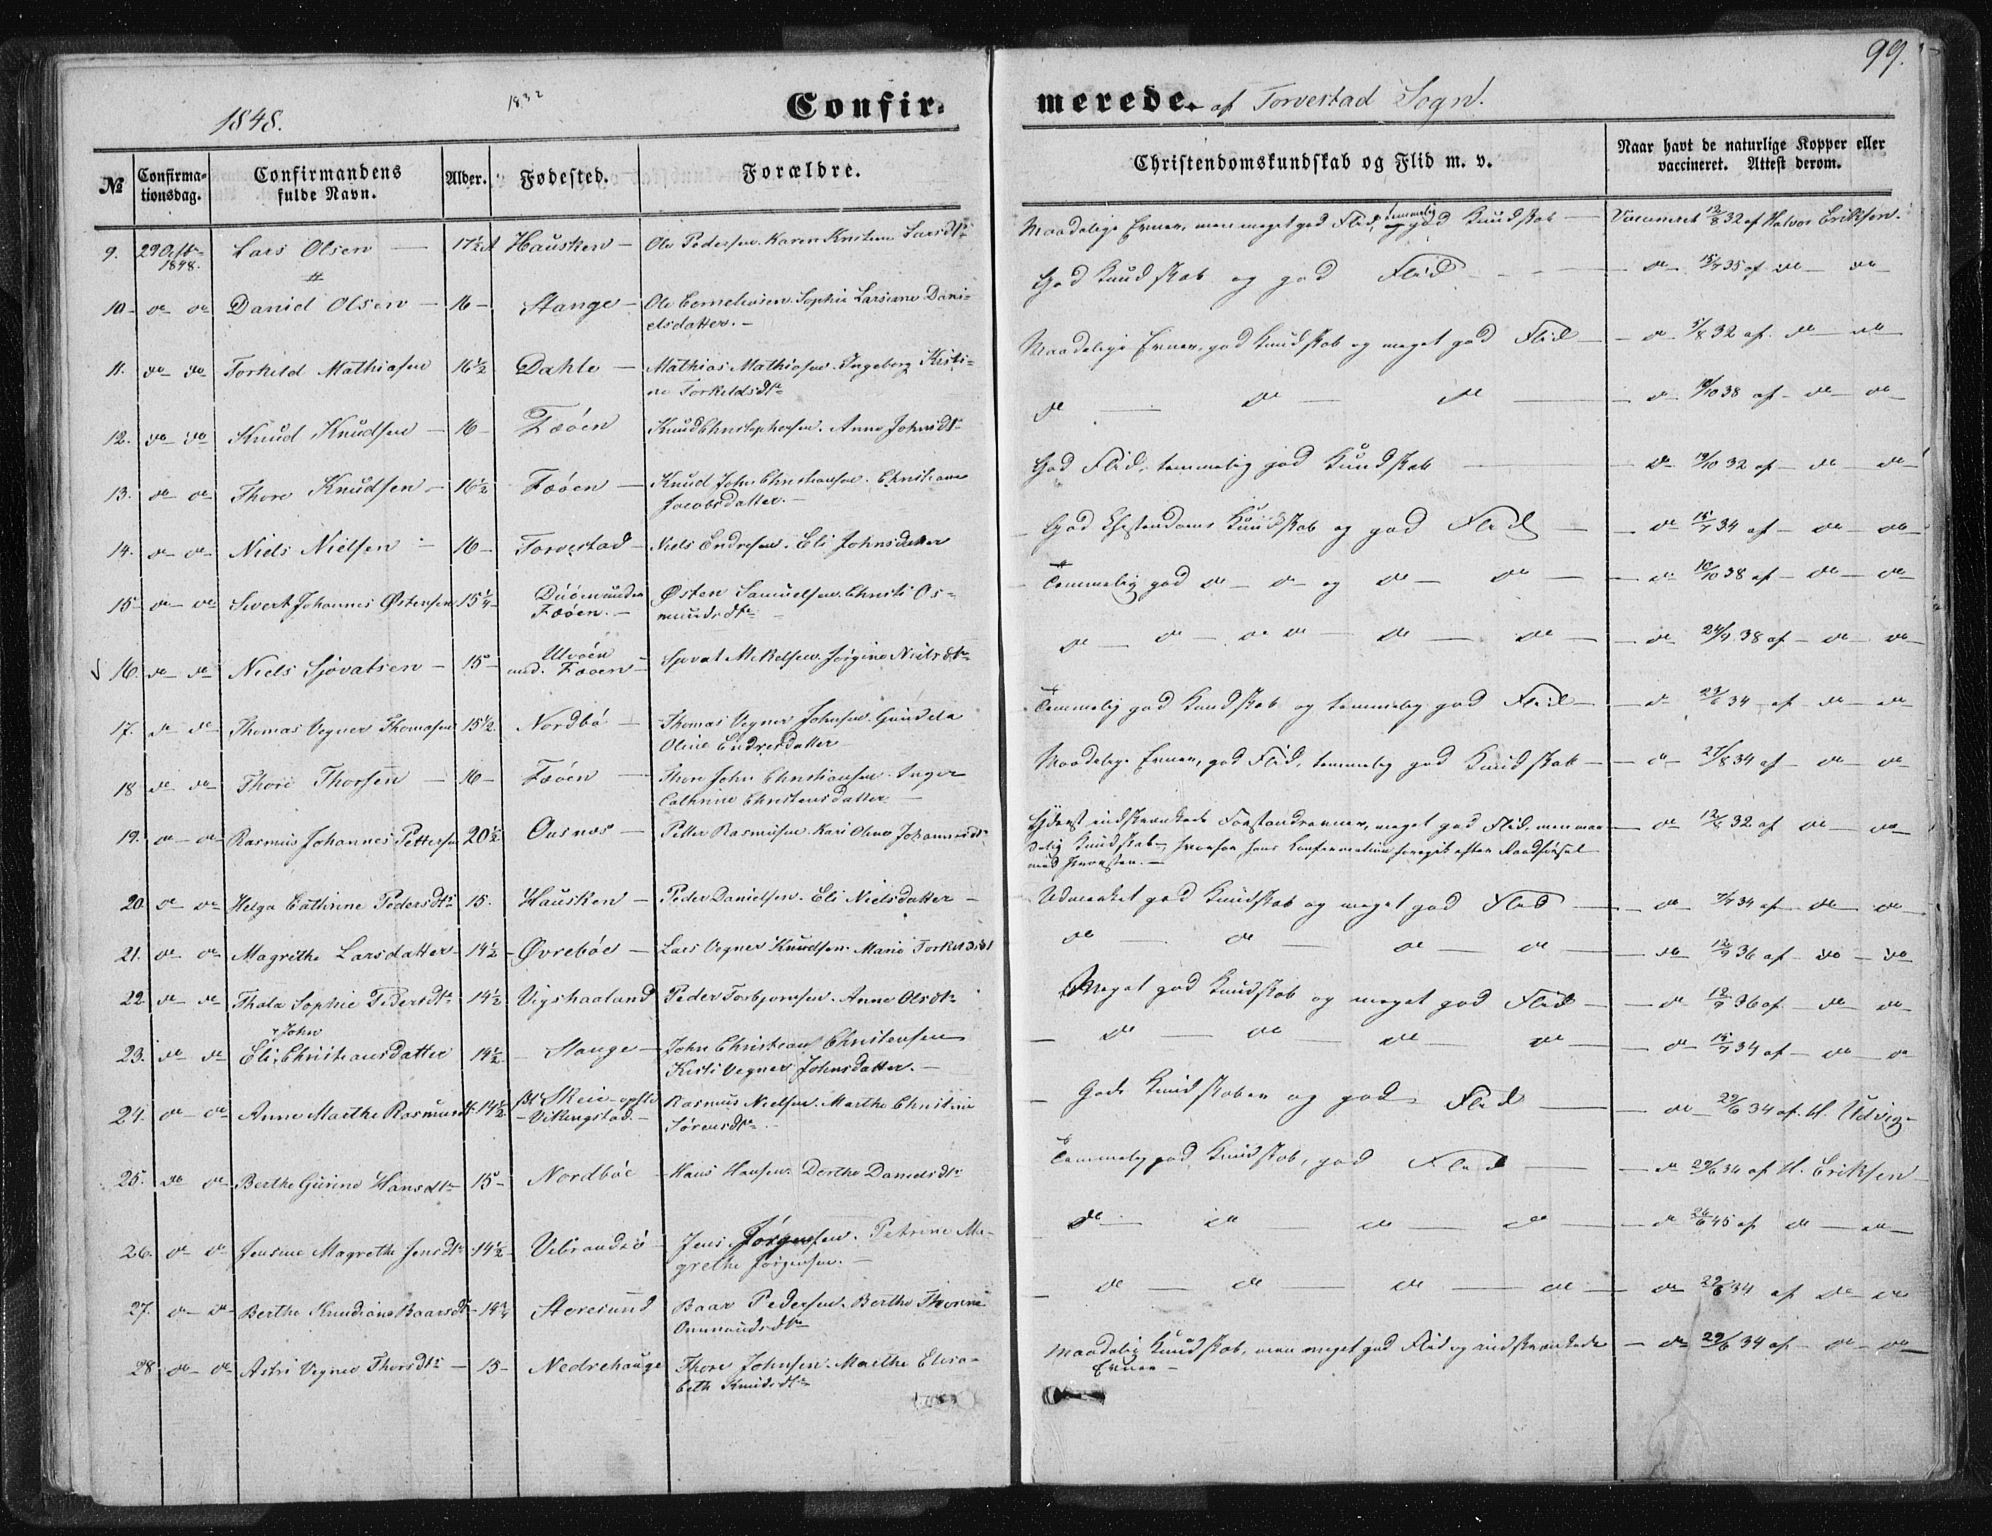 99.
1848.
1832
Confir-
merede. af Torvestad Sogn.
№
Confirma-
tionsdag.
Confirmandens
fulde Navn.
Alder.
Fødested.
Forældre.
Christendomskundskab og Flid m. v.
Naar havt de naturlige Kopper eller
vaccineret. Attest derom.
9. 29 Octb. 1848. Lars Olsen — 17½ Hausken — Ole Pedersen. Karen Kristine Larsdtr
Maadelige Evner, men meget god Flid, og temmelig god Kundskab — Vaccineret 12/8 32 af Halvor Eriksen.
10 — do do Daniel Olsen — 16 — Stange — Ole Cornelius­en. Sophie Larsine Dani-
elsdatter. —
God Kundskab og god Flid — do 15/7 35 af do — do
11. do do Torkild Mathiasen 16½ Dahle — Mathias Mathiasen. Ingeborg Kristi-
ne Torkildsdtr
Maadelige Evner, god Kundskab og meget god Flid — do 5/8 32 af do — do
12. do do Knud Knudsen — 16 — Fæøen Knud Christophersen. Anna Johnsdtr
do — do — do — do 10/10 38 af — do — do
13. do — do — Thore Knudsen — 16½ Fæøen — Knud John Christiansen. Christiane
Jacobsdatter. —
God Flid, temmelig god Kundskab — do 19/10 32 af — do — do —
14. do — do — Niels Nielsen — 16 — Torvestad — Niels Endresen. Eli Johnsdatter
God Christendoms Kundskab og god Flid — do 15/7 34 af — do — do —
15 — do — do Sivert Johannes Østensen 15¼ —
Fæøen. — Østen Samuelsen. Christi Os-
mundsdtr —
Temmelig god do — do — og do — do — do 10/10 38 af — do — do —
16. do — do — Niels Sjovatsen — 15 — Utvøen
und. Fæøen — Sjovat Mikelsen. Jørgine Nielsdtr
do — do — do do — do — do — do 24/9 38 af — do — do
17. do — do Thomas Vegner Thomasen 15½. Nordbø — Thomas Vegner Johnsen. Gundela
Oline Endresdatter —
Temmelig god Kundskab og temmelig god Flid — do 29/6 34 af — do — do
18 do — do Thore Thorsen — 16 — Fæøen — Thore John Christiansen. Inger
Cathrine Christensdatter —
Maadelige Evner, god Flid, temmelig god Kundskab — do 27/8 34 af — do — do
19. do — do Rasmus Johannes Pettersen 20½ Oasnæs — Petter Rasmusen. Kari Olena Johannesdtr
Yderst indskrænkede Forstandsevner, meget god Flid, men maa-
delig Kundskab, hvorfor hans Confirmation foregik efter Raadførsel
med Provsten. —
do 12/6 32 af do — do
20. do — do Helga Cathrine Pedersdtr 15. Hausken — Peder Danielsen. Eli Nielsdatter —
Udmærket god Kundskab og meget god Flid — do 7/7 34 af — do — do
21. do do Magrethe Larsdatter 14½ Øvrebøe — Lars Vegner Knudsen. Marie Torkildsdt
do — do — do — do — do 12/9 36 af — do — do
22 do — do Thala Sophie Pedersdtr 14½ Vigshaaland Peder Torbjornsen. Anne Olsdtr
Meget god Kundskab og meget god Flid — do 12/9 36 af — do — do
23. do do Eli John Christiansdatter 14½ — Stange — John Christian Christensen
Kisti Vegner Johnsdatter. —
do — do — do — do — do 15/7 34 af — do — do
24. do — do Anne Marthe Rasmusdt 14½
Vikingstad. — Rasmus Nielsen. Marthe Christine
Sørensdtr —
Gode Kundskaber og god Flid — do 29/6 34 af H. Udvig —
25. do do Berthe Gurine Hansdtr 15 — Nordbøe — Hans Hansen. Dorthe Danielsdtr
Temmelig god Kundskab, god Flid — do 29/6 34 af H. Eriksen —
26. do do Jensine Magrethe Jensdtr 14½ Vibrandsø — Jens Jørgensen. Petrine Ma-
grethe Jørgensen. —
do — do — do — do — do 26/6 45 af do — do —
27. do — do — Berthe Knudiane Baarsdtr 14¾ Storesund Baar Pedersen. Berthe Thorine
Ommundsdtr
do — do — do — do — do 29/6 34 af do — do
28 do — do Astri Vegner Thorsdtr — 15 — Nedrehauge Thore Johnsen. Marthe Elisa-
beth Knudsdtr
Maadelig Kundskab, men meget god Flid og indskrænkede
Evner — do 29/6 34 af — do — do —